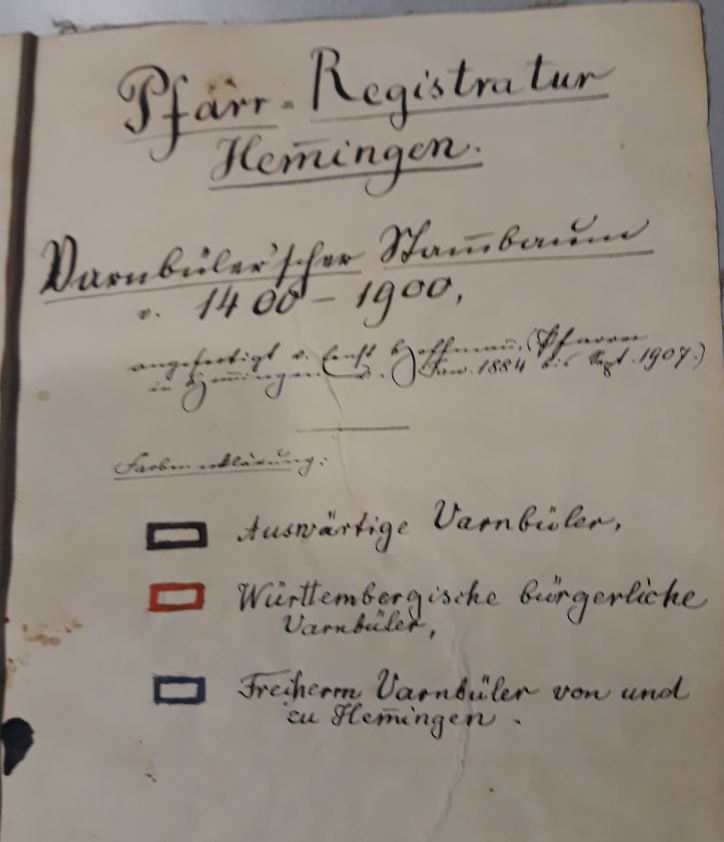 Pfarr-Registratur
Hem̄ingen.
Varnbüler'scher Stam̄baum
v. 1400 – 1900,
angefertigt v. Ernst Hoffman̄, (Pfarrer
in Hem̄ingen v. Jan. 1884 bis Sept. 1907.)
Farbenerklärung:
Auswärtige Varnbüler,
Württembergische bürgerliche
Varnbüler,
Freiherrn Varnbüler von und
zu Hem̄ingen.